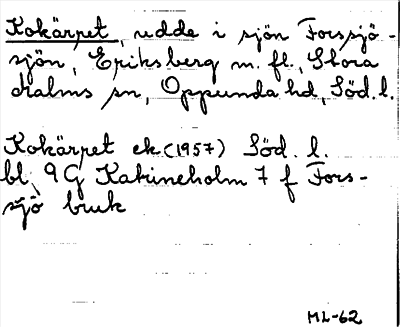 Kokärret, udde i sjön Forssjö-
sjön, Eriksberg m. fl., Stora
Malms sn, Oppunda hd, Söd. l.
Kokärret ek (1957) Söd. l.
bl. 9 G Katrineholm 7 f Fors-
sjö bruk
ML-62